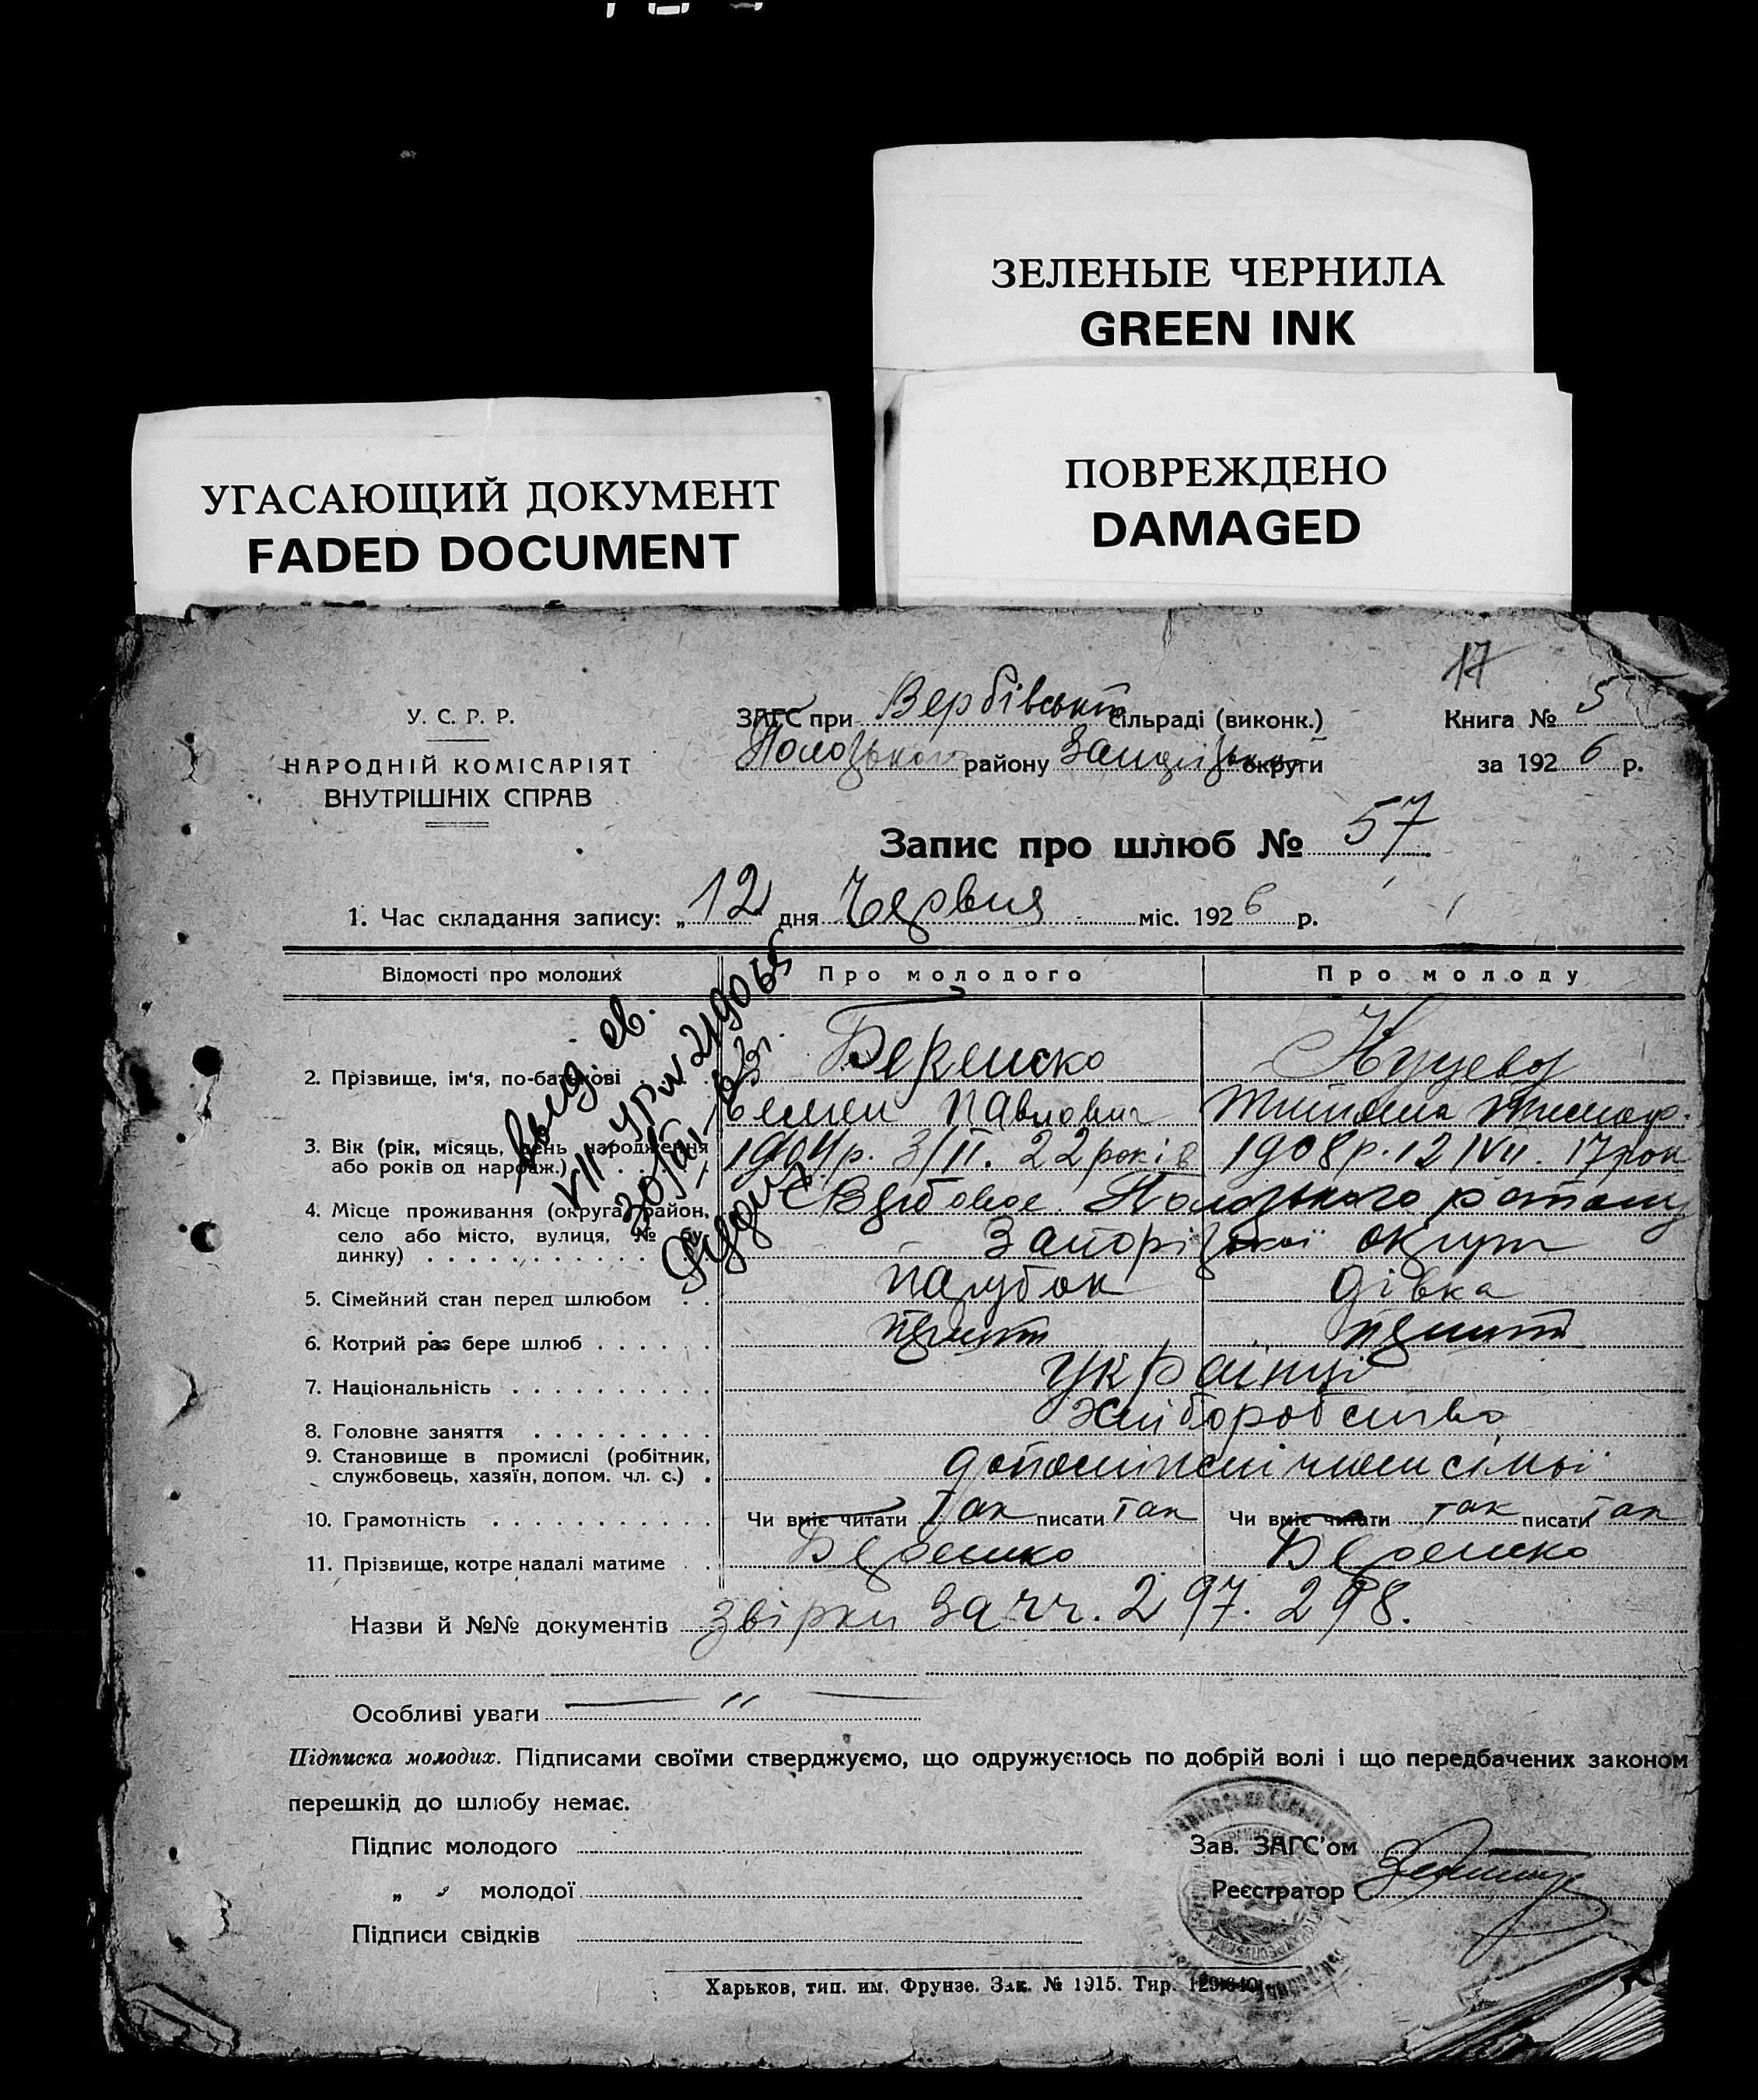 ЗЕЛЕНЫЕ ЧЕРНИЛА
GREEN INK
УГАСАЮЩИЙ ДОКУМЕНТ
FADED DOCUMENT
ПОВРЕЖДЕНО
DAMAGED
17
У. С. Р. Р.
НАРОДНІЙ КОМІСАРІЯТ
ВНУТРІШНІХ СПРАВ
ЗАГС при Вербівській сільраді (виконк.)
Пологського району Запорізької округи
Книга № 5
за 1926 р.
Запис про шлюб № 57
1. Час складання запису: „12" дня Червня міс. 1926 р.
Відомості про молодих
Про молодого
Про молоду
2. Прізвище, ім'я, по-батькові
Семен Павлович
3. Вік (рік, місяць, день народження або років од народж.)
1904 р. 3/II. 22 років
1908 р. 12/VII. 17 рок
4. Місце проживання (округа, район, село або місто, вулиця, № будинку)
С Вербовое Пологського району
Запорізької округи
5. Сімейний стан перед шлюбом
парубок
дівка
6. Котрий раз бере шлюб
перший
перший
7. Національність
Українці
8. Головне заняття
Хліборобство
9. Становище в промислі (робітник, службовець, хазяїн, допом. чл. с.)
допоміжні члени сімьї
10. Грамотність
Чи вміє читати так писати так
Чи вміє читати так писати так
11. Прізвище, котре надалі матиме
Назви й №№ документів звірки за чч. 297. 298.
Особливі уваги — " —
Підписка молодих. Підписами своїми стверджуємо, що одружуємось по добрій волі і що передбачених законом
перешкід до шлюбу немає.
Підпис молодого
„ „ молодої
Підписи свідків
Зав. ЗАГС'ом
Реєстратор
Харьков, тип. им. Фрунзе. Зак. № 1915. Тир.